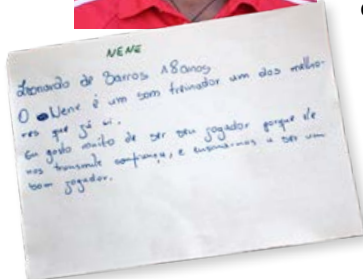 NENE
Leonardo de Barros 18 anos
O Nene é um bom treinador um dos melho-
res que já vi.
Eu gosto muito de ser seu jogador porque ele
nos transmite confiança, e ensinarmos a ser um
bom jogador.